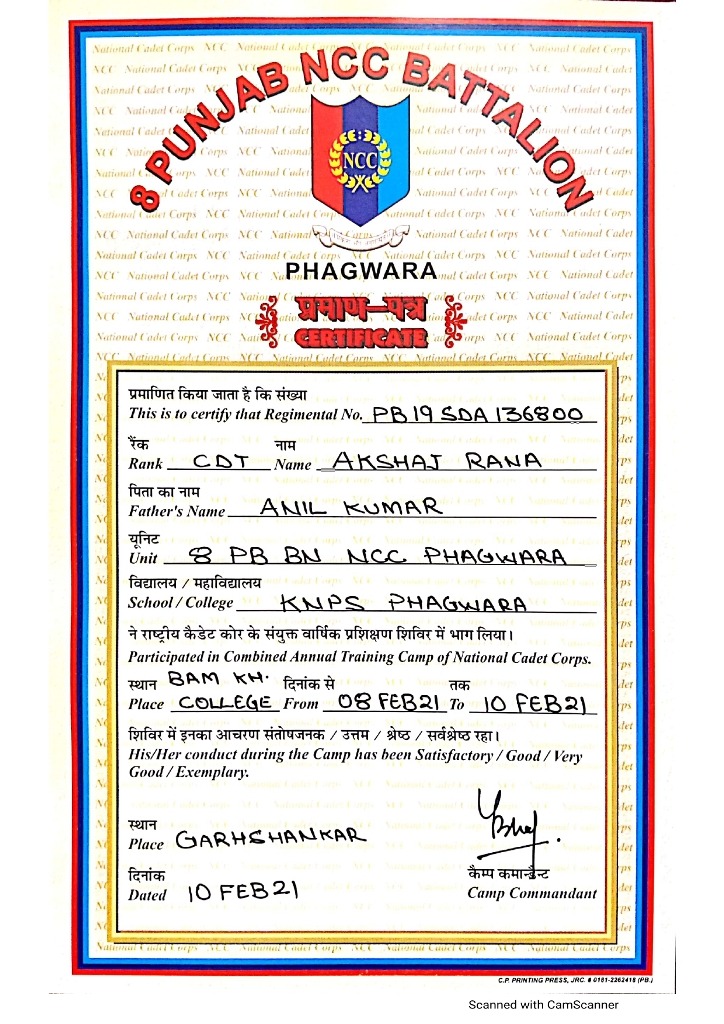 8 PUNJAB NCC BATTALION
NCC
PHAGWARA
प्रमाण-पत्र
CERTIFICATE
प्रमाणित किया जाता है कि संख्या
This is to certify that Regimental No. PB19SDA136800
रैंक नाम
Rank CDT Name AKSHAJ RANA
पिता का नाम
Father's Name ANIL KUMAR
यूनिट
Unit 8 PB BN NCC PHAGWARA
विद्यालय / महाविद्यालय
School / College KNPS PHAGWARA
ने राष्ट्रीय कैडेट कोर के संयुक्त वार्षिक प्रशिक्षण शिविर में भाग लिया।
Participated in Combined Annual Training Camp of National Cadet Corps.
स्थान BAM KH. दिनांक से तक
Place COLLEGE From 08 FEB21 To 10 FEB21
शिविर में इनका आचरण संतोषजनक / उत्तम / श्रेष्ठ / सर्वश्रेष्ठ रहा।
His/Her conduct during the Camp has been Satisfactory / Good / Very
Good / Exemplary.
स्थान
Place GARHSHANKAR
दिनांक
Dated 10 FEB21
कैम्प कमान्डैन्ट
Camp Commandant
C.P. PRINTING PRESS, JRC. # 0181-2262418 (PB.)
Scanned with CamScanner